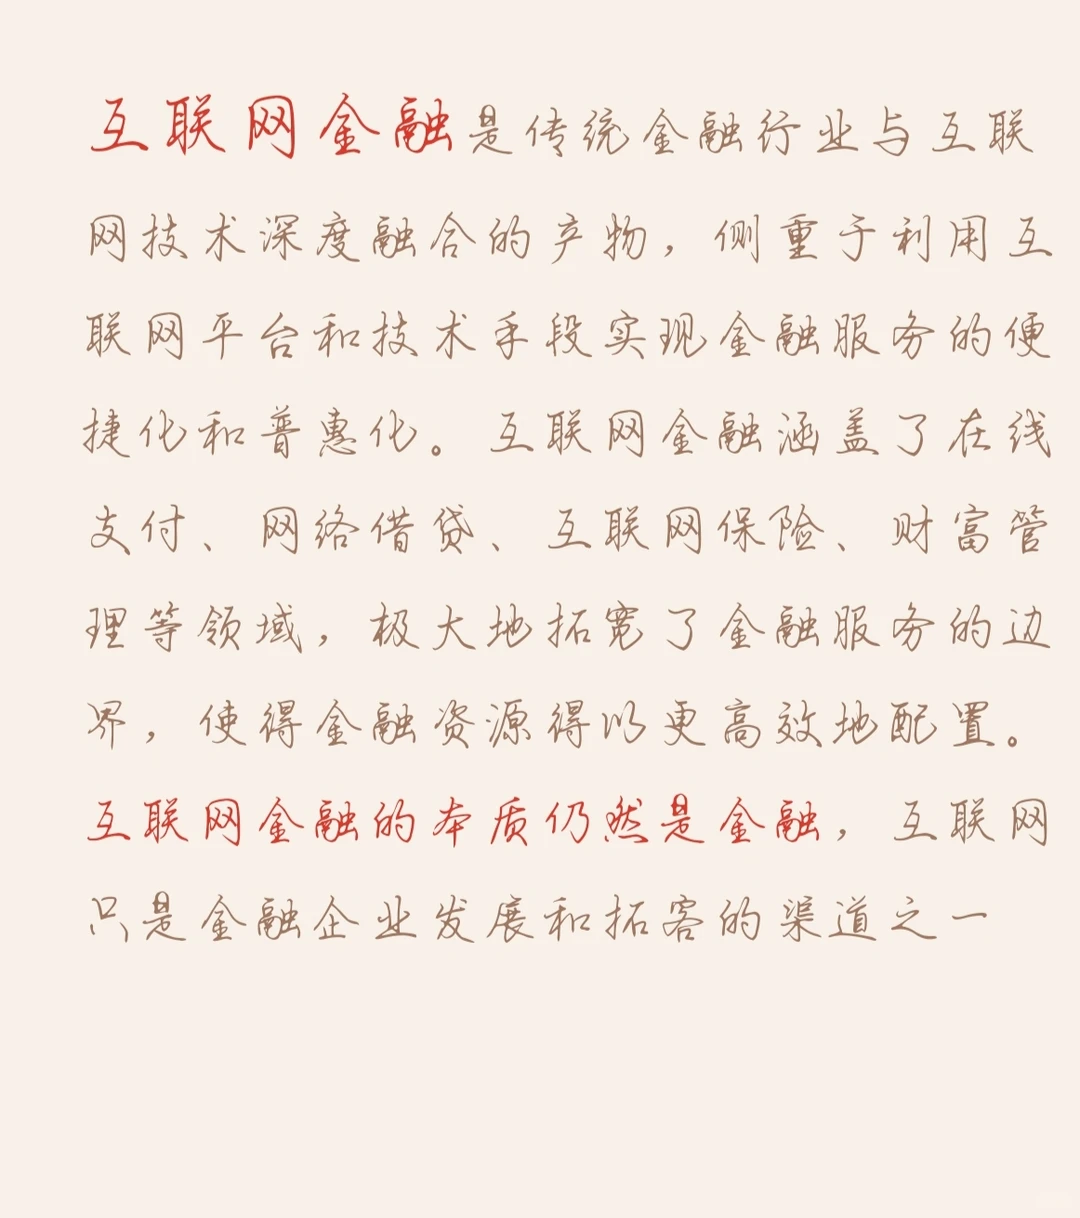 互联网金融是传统金融行业与互联
网技术深度融合的产物，侧重于利用互
联网平台和技术手段实现金融服务的便
捷化和普惠化。互联网金融涵盖了在线
支付、网络借贷、互联网保险、财富管
理等领域，极大地拓宽了金融服务的边
界，使得金融资源得以更高效地配置。
互联网金融的本质仍然是金融，互联网
只是金融企业发展和拓客的渠道之一